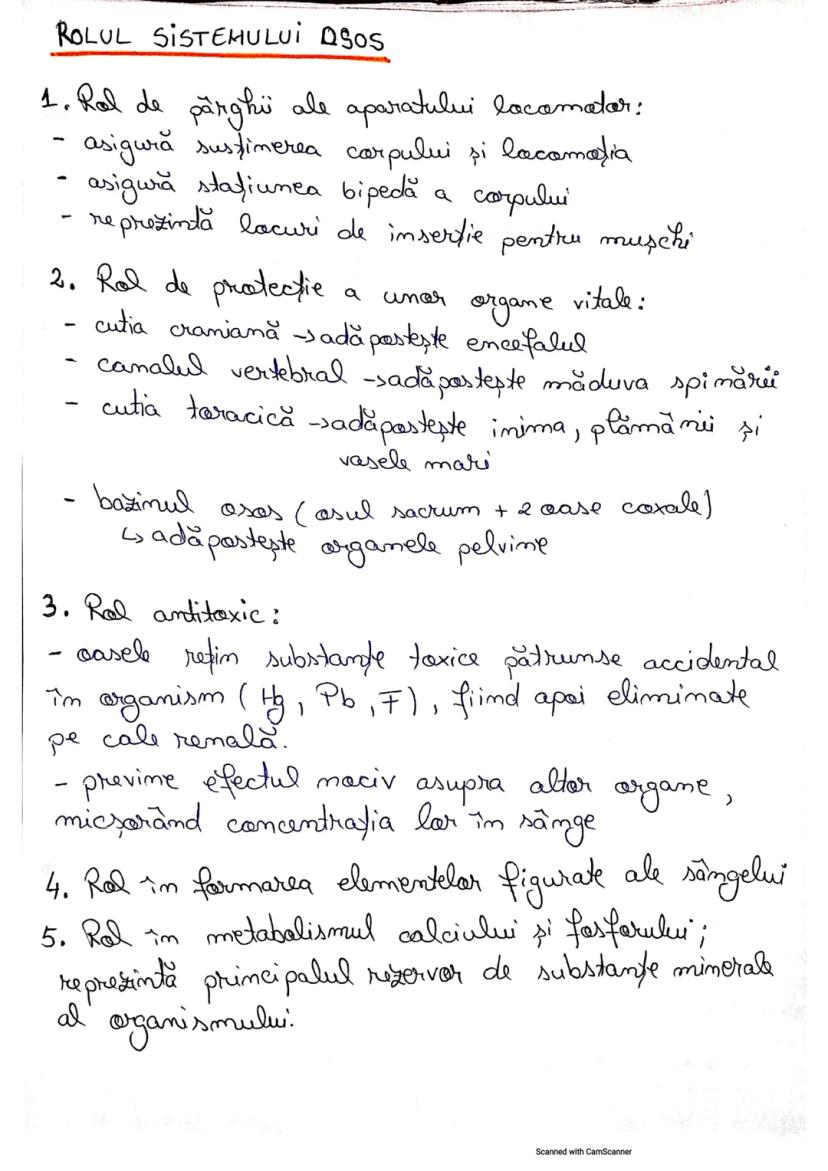 ROLUL SISTEMULUI OSOS
1. Rol de pârghii ale aparatului locomotor:
- asigură susținerea corpului și locomoția
- asigură stațiunea bipedă a corpului
- reprezintă locuri de inserție pentru mușchi
2. Rol de protecție a unor organe vitale:
- cutia craniană → adăpostește encefalul
- canalul vertebral → adăpostește măduva spinării
- cutia toracică → adăpostește inima, plămânii și
vasele mari
- bazinul osos (osul sacrum + 2 oase coxale)
↳ adăpostește organele pelvine
3. Rol antitoxic:
- oasele rețin substanțe toxice pătrunse accidental
în organism (Hg, Pb, F), fiind apoi eliminate
pe cale renală.
- previne efectul nociv asupra altor organe,
micșorând concentrația lor în sânge
4. Rol în formarea elementelor figurate ale sângelui
5. Rol în metabolismul calciului și fosforului;
reprezintă principalul rezervor de substanțe minerale
al organismului.
Scanned with CamScanner